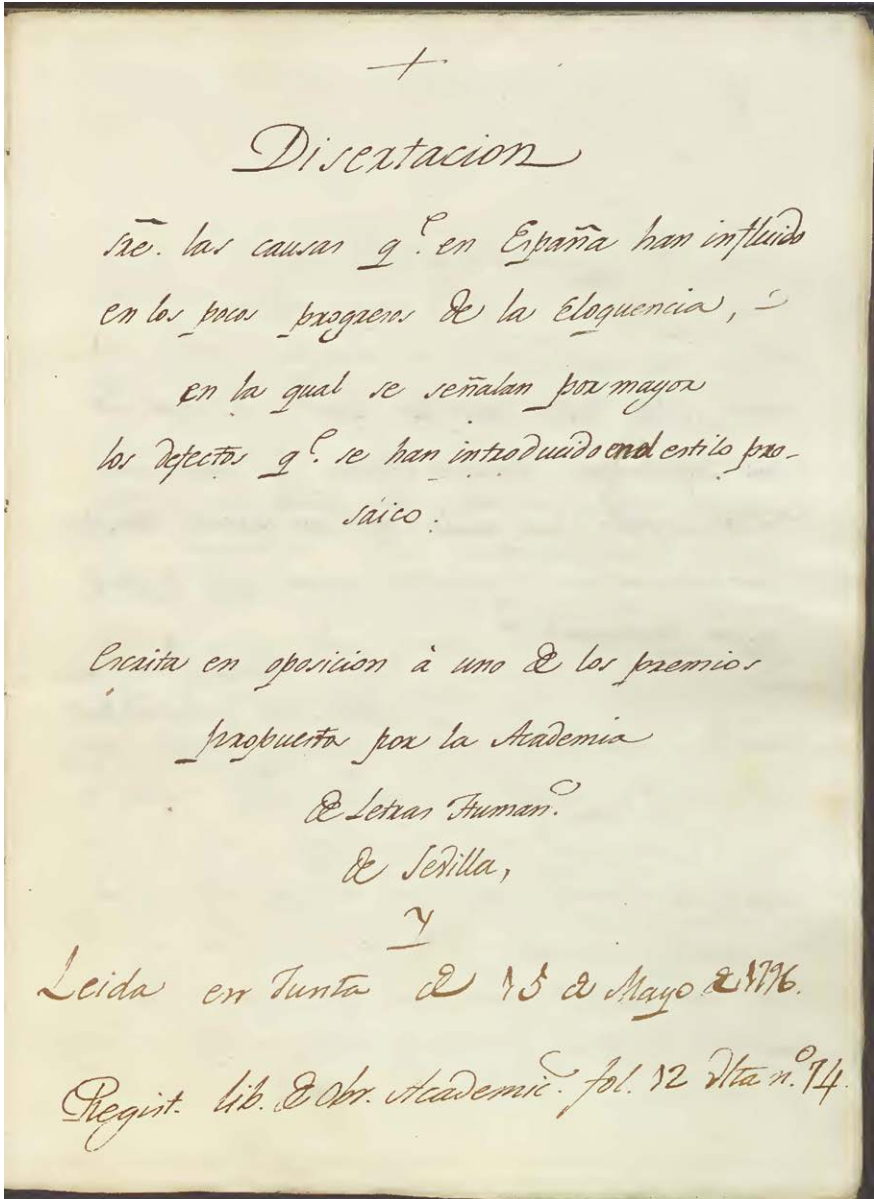 +
Disertacion
sr̃e. las causas q.e en España han influido
en los pocos progresos de la Eloquencia, =
en la qual se señalan por mayor
los defectos q.e se han introducido en el estilo pro-
sáico.
Escrita en oposicion à uno de los premios
propuesta por la Academia
de Letras Human.s
de Sevilla,
y
Leida en Junta de 15 de Mayo de 1796.
Regist. lib. de Obr. Academic.s fol. 12 vlta n.o 74.